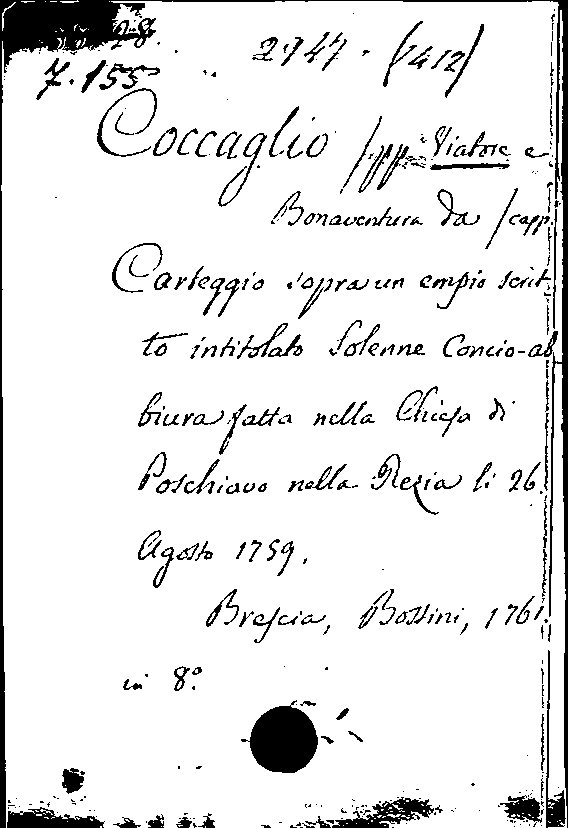 28.
7.155
2.747. (7412)
Coccaglio (pp. Viatore e
Bonaventura da (capp.
Carteggio sopra un empio scrit-
to intitolato Solenne Concio-ab
biura fatta nella Chiesa di
Poschiavo nella Rezia li 26.
Agosto 1759.
Brescia, Bossini, 1761.
in 8º.